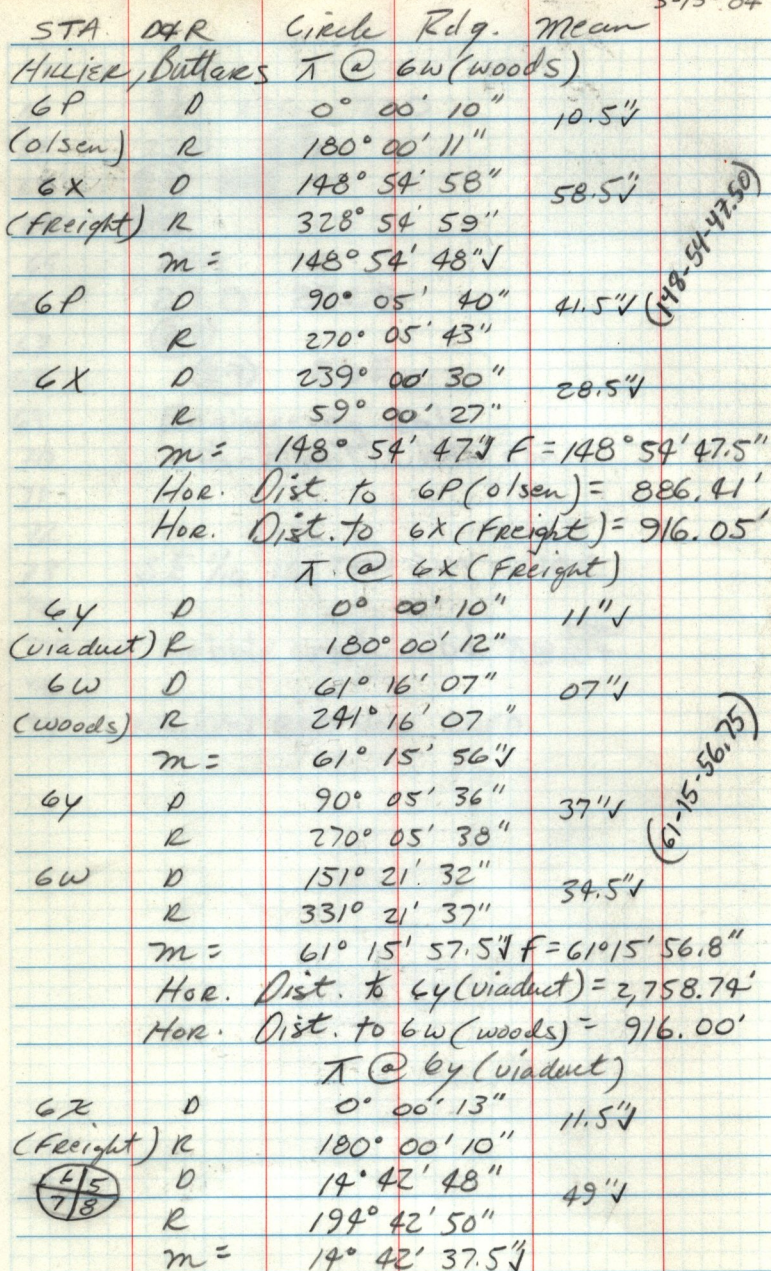 3-15-84
STA. D&R Circle Rdg. Mean
HILLIER, Buttars ⊼ @ 6W (woods)
6P D 0° 00' 10" 10.5"✓
(olsen) R 180° 00' 11"
6X D 148° 54' 58" 58.5"✓
(Freight) R 328° 54' 59"
m = 148° 54' 48"✓
6P D 90° 05' 40" 41.5"✓ (148-54-47.50)
R 270° 05' 43"
6X D 239° 00' 30" 28.5"✓
R 59° 00' 27"
m = 148° 54' 47"✓ F = 148° 54' 47.5"
Hor. Dist. to 6P (olsen) = 886.41'
Hor. Dist. to 6X (Freight) = 916.05'
⊼ @ 6X (Freight)
6y D 0° 00' 10" 11"✓
(viaduct) R 180° 00' 12"
6W D 61° 16' 07" 07"✓
(woods) R 241° 16' 07"
m = 61° 15' 56"✓
6y D 90° 05' 36" 37"✓ (61-15-56.75)
R 270° 05' 38"
6W D 151° 21' 32" 34.5"✓
R 331° 21' 37"
m = 61° 15' 57.5"✓ F = 61° 15' 56.8"
Hor. Dist. to 6y (viaduct) = 2,758.74'
Hor. Dist. to 6W (woods) = 916.00'
⊼ @ 6y (viaduct)
6X D 0° 00' 13" 11.5"✓
(Freight) R 180° 00' 10"
6 5 D 14° 42' 48" 49"✓
7 8 R 194° 42' 50"
m = 14° 42' 37.5"✓